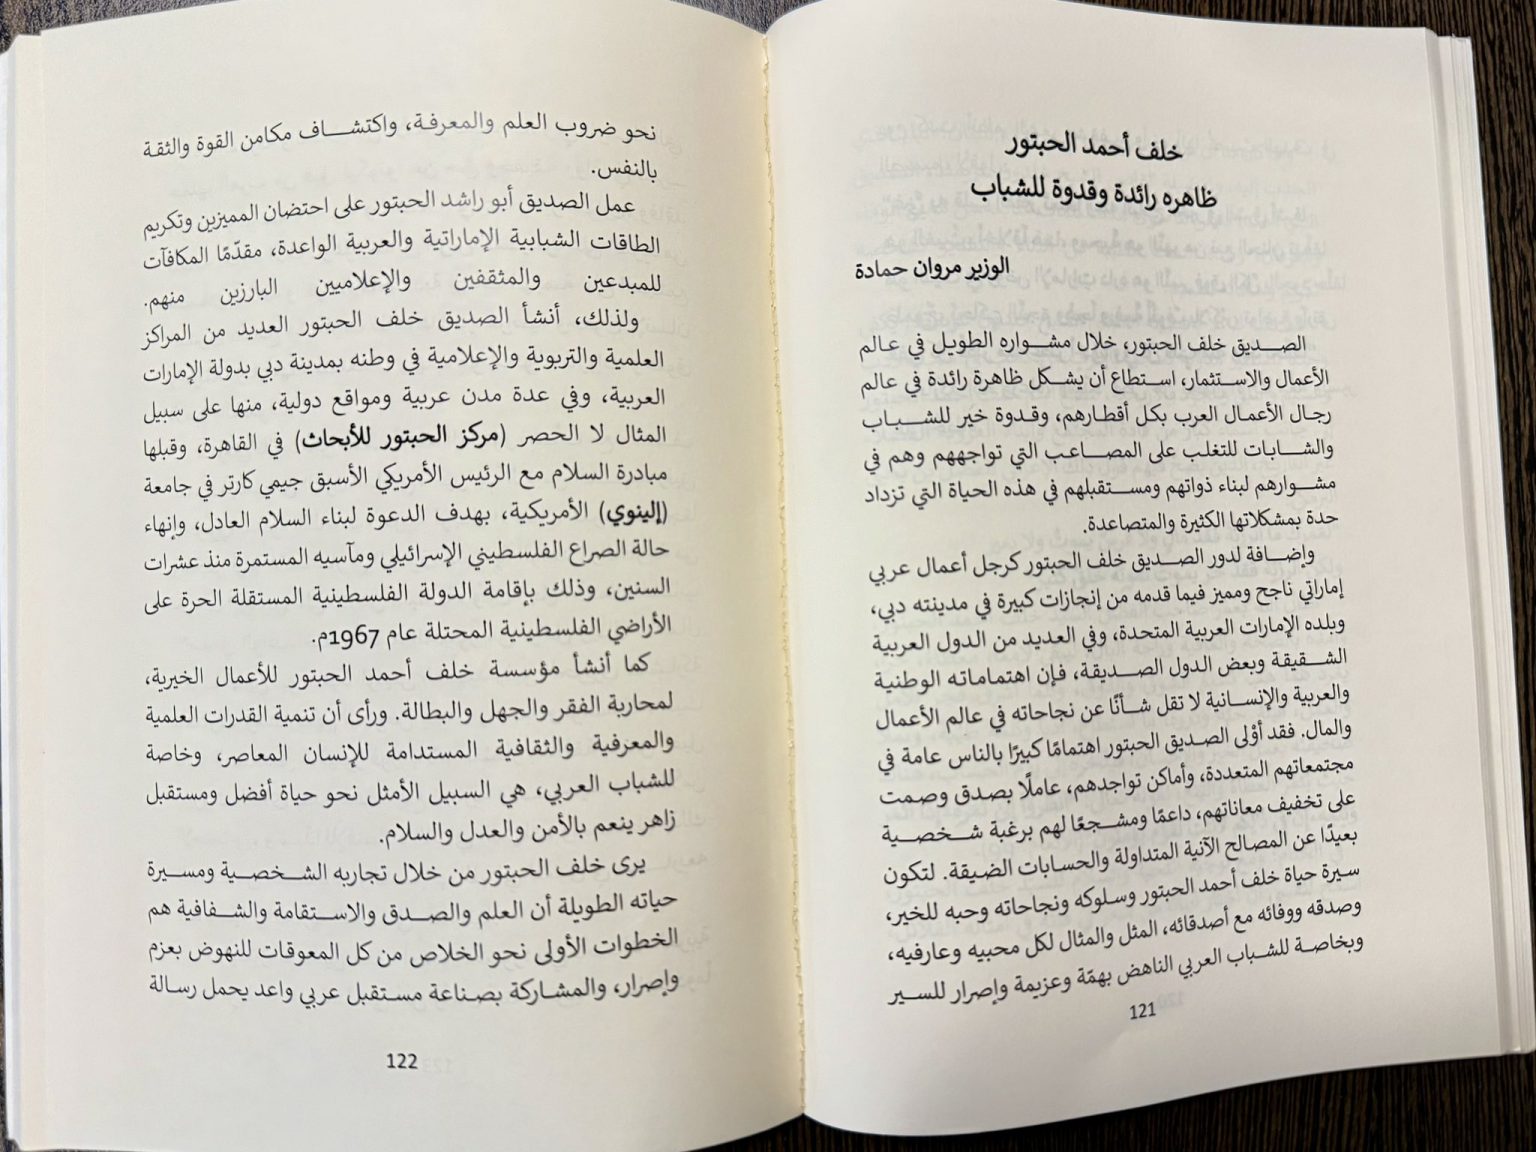 خلف أحمد الحبتور
ظاهره رائدة وقدوة للشباب
الوزير مروان حمادة
الصديق خلف الحبتور، خلال مشواره الطويل في عالم
الأعمال والاستثمار، استطاع أن يشكل ظاهرة رائدة في عالم
رجال الأعمال العرب بكل أقطارهم، وقدوة خير للشباب
والشابات للتغلب على المصاعب التي تواجههم وهم في
مشوارهم لبناء ذواتهم ومستقبلهم في هذه الحياة التي تزداد
حدة بمشكلاتها الكثيرة والمتصاعدة.
وإضافة لدور الصديق خلف الحبتور كرجل أعمال عربي
إماراتي ناجح ومميز فيما قدمه من إنجازات كبيرة في مدينته دبي،
وبلده الإمارات العربية المتحدة، وفي العديد من الدول العربية
الشقيقة وبعض الدول الصديقة، فإن اهتماماته الوطنية
والعربية والإنسانية لا تقل شأنًا عن نجاحاته في عالم الأعمال
والمال. فقد أوْلى الصديق الحبتور اهتمامًا كبيرًا بالناس عامة في
مجتمعاتهم المتعددة، وأماكن تواجدهم، عاملًا بصدق وصمت
على تخفيف معاناتهم، داعمًا ومشجعًا لهم برغبة شخصية
بعيدًا عن المصالح الآنية المتداولة والحسابات الضيقة. لتكون
سيرة حياة خلف أحمد الحبتور وسلوكه ونجاحاته وحبه للخير،
وصدقه ووفائه مع أصدقائه، المثل والمثال لكل محبيه وعارفيه،
وبخاصة للشباب العربي الناهض بهمّة وعزيمة وإصرار للسير
121
نحو ضروب العلم والمعرفة، واكتشاف مكامن القوة والثقة
بالنفس.
عمل الصديق أبو راشد الحبتور على احتضان المميزين وتكريم
الطاقات الشبابية الإماراتية والعربية الواعدة، مقدّمًا المكافآت
للمبدعين والمثقفين والإعلاميين البارزين منهم.
ولذلك، أنشأ الصديق خلف الحبتور العديد من المراكز
العلمية والتربوية والإعلامية في وطنه بمدينة دبي بدولة الإمارات
العربية، وفي عدة مدن عربية ومواقع دولية، منها على سبيل
المثال لا الحصر (مركز الحبتور للأبحاث) في القاهرة، وقبلها
مبادرة السلام مع الرئيس الأمريكي الأسبق جيمي كارتر في جامعة
(إلينوي) الأمريكية، بهدف الدعوة لبناء السلام العادل، وإنهاء
حالة الصراع الفلسطيني الإسرائيلي ومآسيه المستمرة منذ عشرات
السنين، وذلك بإقامة الدولة الفلسطينية المستقلة الحرة على
الأراضي الفلسطينية المحتلة عام 1967م.
كما أنشأ مؤسسة خلف أحمد الحبتور للأعمال الخيرية،
لمحاربة الفقر والجهل والبطالة. ورأى أن تنمية القدرات العلمية
والمعرفية والثقافية المستدامة للإنسان المعاصر، وخاصة
للشباب العربي، هي السبيل الأمثل نحو حياة أفضل ومستقبل
زاهر ينعم بالأمن والعدل والسلام.
يرى خلف الحبتور من خلال تجاربه الشخصية ومسيرة
حياته الطويلة أن العلم والصدق والاستقامة والشفافية هم
الخطوات الأولى نحو الخلاص من كل المعوقات للنهوض بعزم
وإصرار، والمشاركة بصناعة مستقبل عربي واعد يحمل رسالة
122